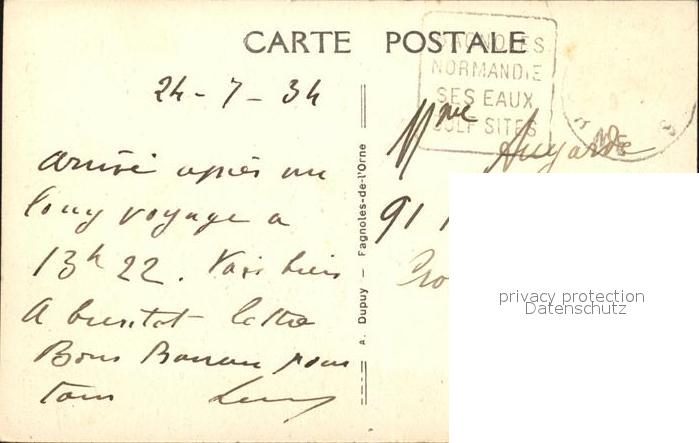 CARTE POSTALE
BAGNOLES
NORMANDIE
SES EAUX
GOLF SITES
24-7-34
Mme
arrivé après un
long voyage a
13h 22. Vais bien
A bientot lettre
Bons pour
tous
91
A. Dupuy — Fagnoles-de-l'Orne
privacy protection
Datenschutz